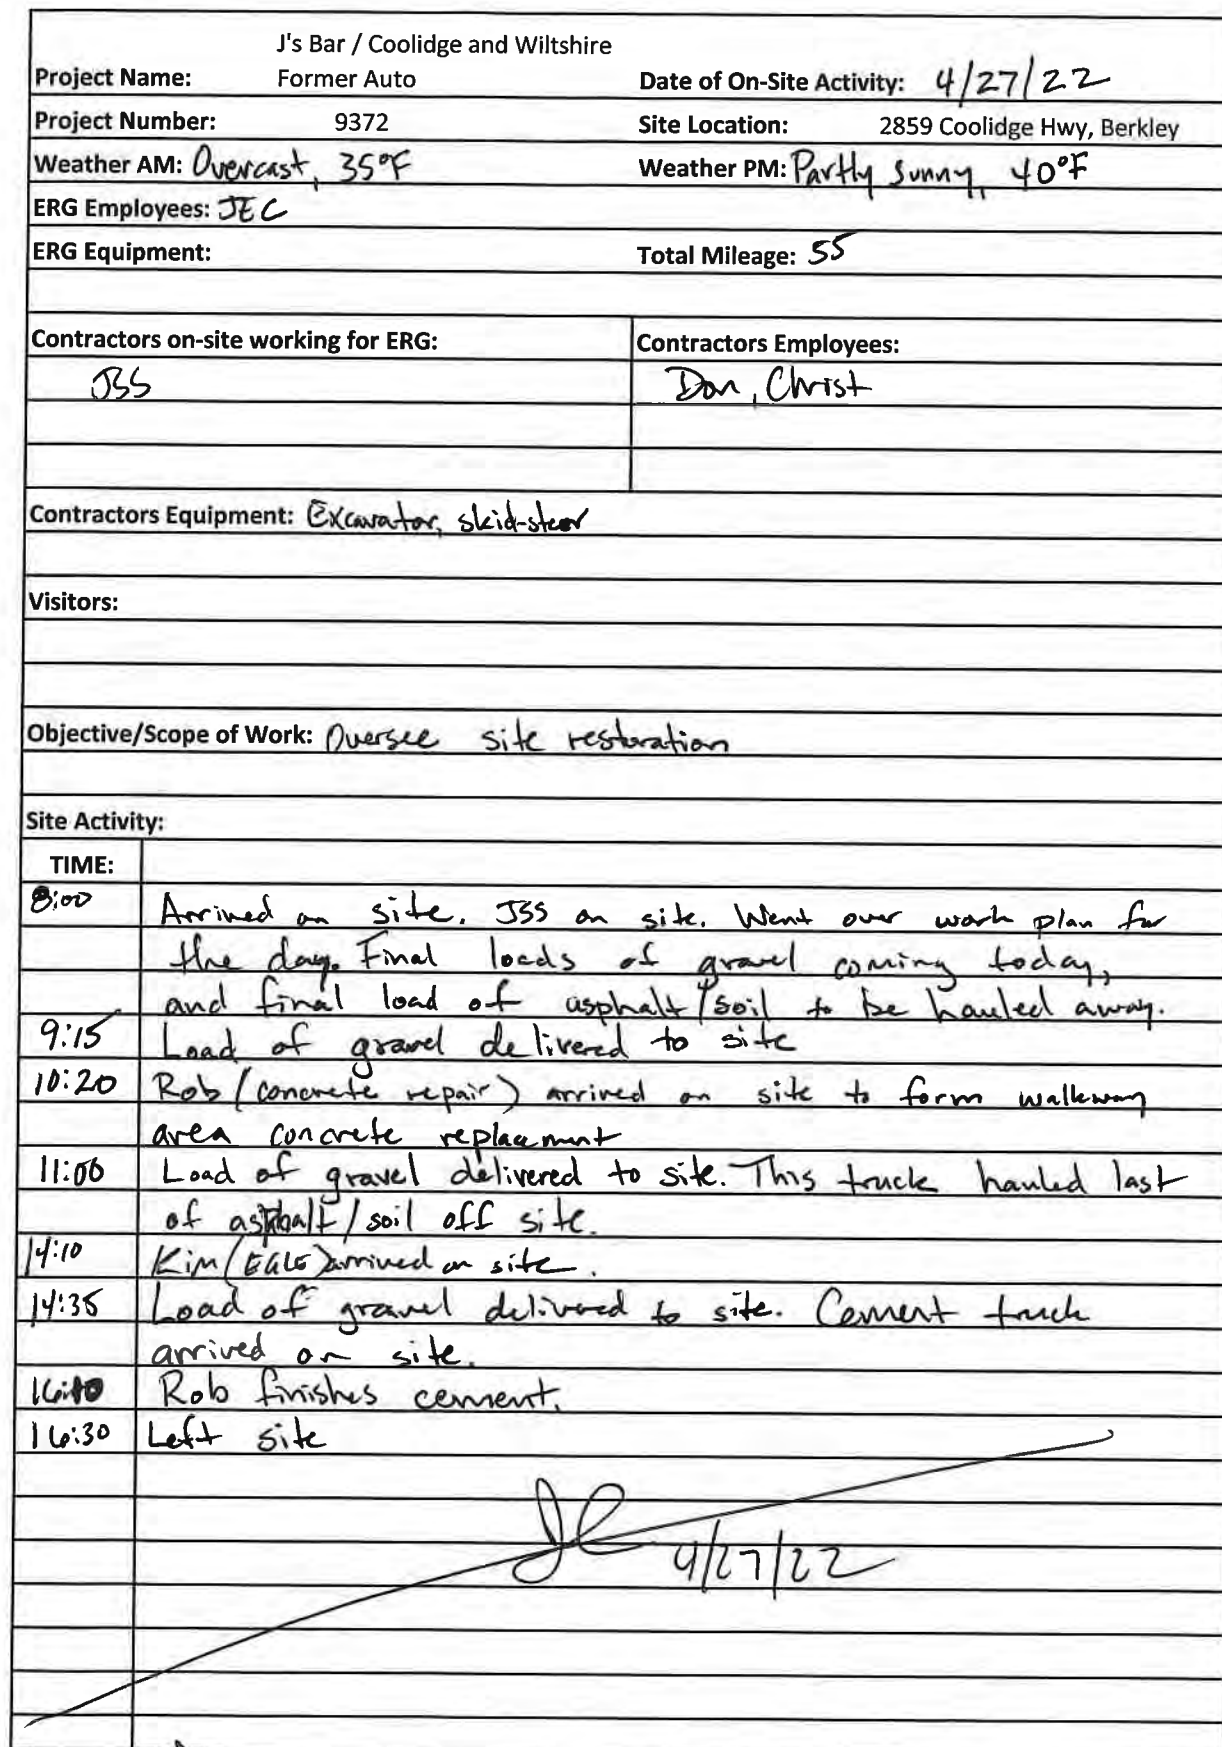 J's Bar / Coolidge and Wiltshire
Project Name: Former Auto Date of On-Site Activity: 4/27/22
Project Number: 9372 Site Location: 2859 Coolidge Hwy, Berkley
Weather AM: Overcast, 35°F Weather PM: Partly Sunny, 40°F
ERG Employees: JEC
ERG Equipment: Total Mileage: 55
Contractors on-site working for ERG: Contractors Employees:
JSS Don, Christ
Contractors Equipment: Excavator, skid-steer
Visitors:
Objective/Scope of Work: Oversee site restoration
Site Activity:
TIME:
8:00 Arrived on site. JSS on site. Went over work plan for
the day. Final loads of gravel coming today,
and final load of asphalt/soil to be hauled away.
9:15 Load of gravel delivered to site
10:20 Rob (concrete repair) arrived on site to form walkway
area concrete replacment
11:00 Load of gravel delivered to site. This truck hauled last
of asphalt/soil off site.
14:10 Kim (EGLE) arrived on site.
14:35 Load of gravel delivered to site. Cement truck
arrived on site.
16:10 Rob finishes cement.
16:30 Left site
4/27/22